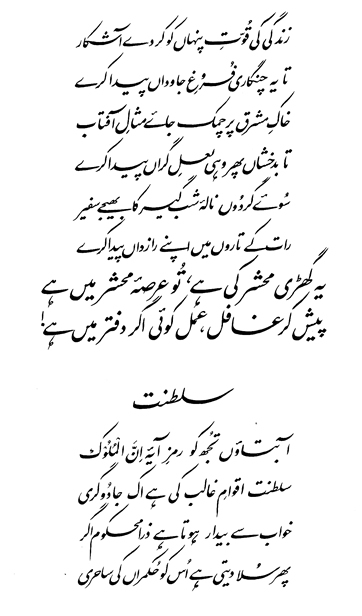 زندگی کی قُوّتِ پنہاں کو کر دے آشکار
تا یہ چنگاری فروغِ جاوداں پیدا کرے
خاکِ مشرق پر چمک جائے مثالِ آفتاب
تا بدخشاں پھر وہی لعلِ گراں پیدا کرے
سُوئے گردُوں نالۂ شب گیر کا بھیجے سفیر
رات کے تاروں میں اپنے رازداں پیدا کرے
یہ گھڑی محشر کی ہے، تُو عرصۂ محشر میں ہے
پیش کر غافل، عمل کوئی اگر دفتر میں ہے!
سلطنت
آ بتاؤں تجھ کو رمزِ آیۂ اِنَّ الْمُلُوْک
سلطنت اقوامِ غالب کی ہے اک جادُوگری
خواب سے بیدار ہوتا ہے ذرا محکوم اگر
پھر سُلا دیتی ہے اُس کو حُکمراں کی ساحری